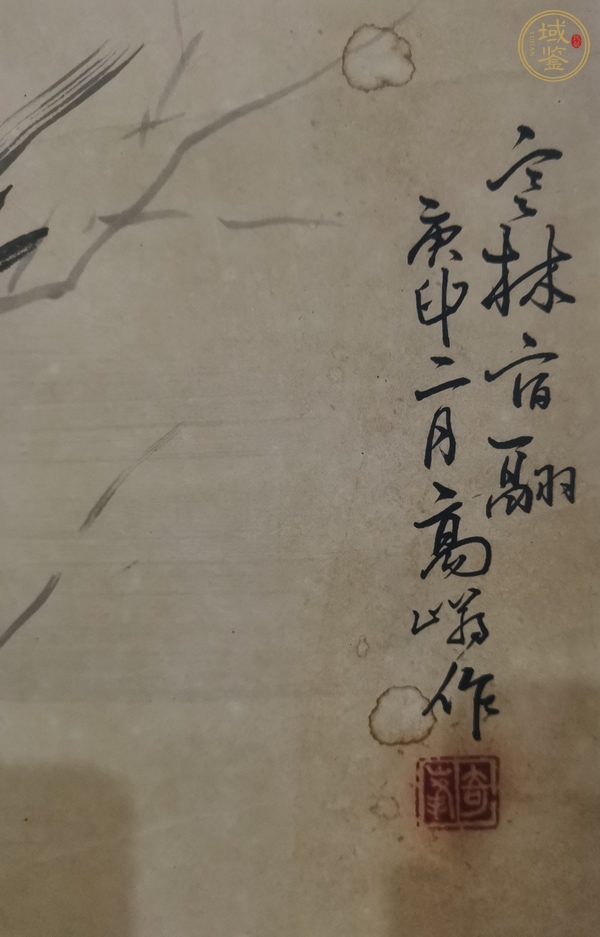 空林宿翮
庚二月高嵡作
奇峯
域鉴